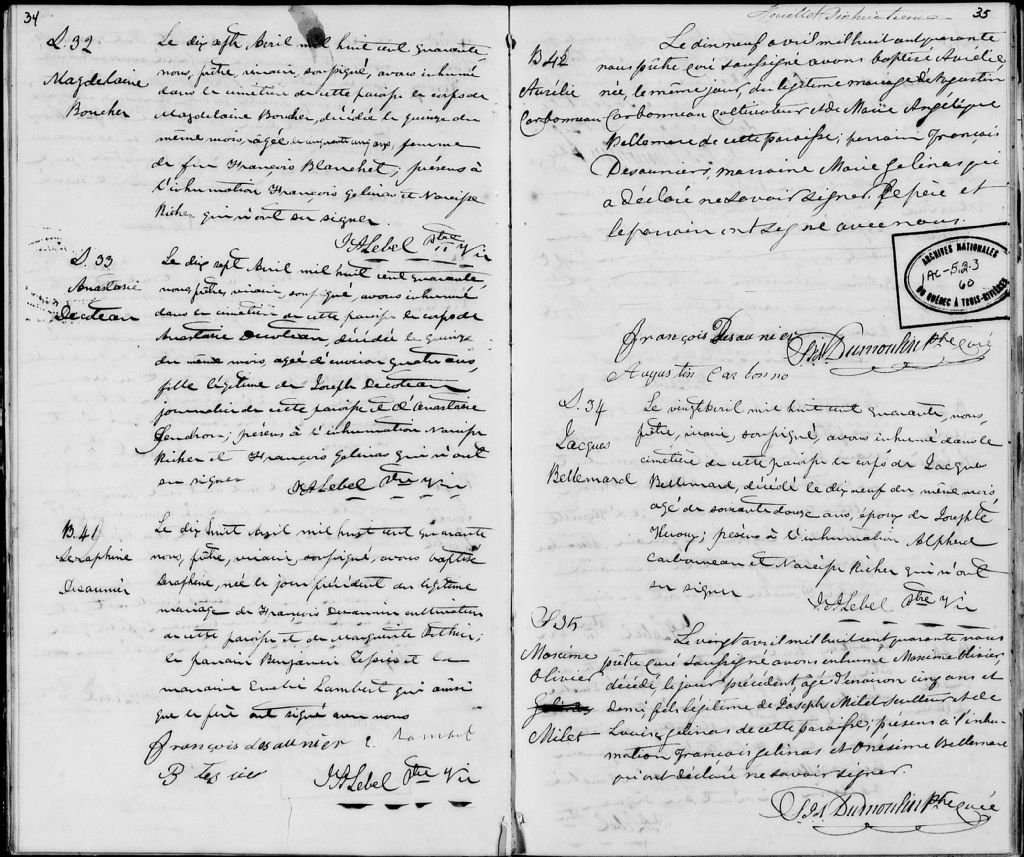 34
S. 32
Magdelaine
Boucher
Le dix sept Avril mil huit cent quarante,
nous, prêtre, vicaire, soussigné, avons inhumé
dans le cimetière de cette paroisse le corps de
Magdelaine Boucher, décédée le quinze du
même mois, agée de cinquante cinq ans, femme
de feu François Blanchet; présens à
l'inhumation François Gelinas et Narcisse
Richer qui n'ont su signer
J. A. Lebel Ptre Vic
S. 33
Anastasie
Decoteau
Le dix sept Avril mil huit cent quarante,
nous, prêtre, vicaire, soussigné, avons inhumé
dans le cimetière de cette paroisse le corps de
Anastasie Decoteau, décédée le quinze
du même mois, agée d'environ quatre ans,
fille légitime de Joseph Decoteau
journalier de cette paroisse et d'Anastasie
Gendron; présens à l'inhumation Narcisse
Richer et François Gelinas qui n'ont
su signer J. A. Lebel Ptre Vic
B. 41
Seraphine
Desaunier
Le dix huit Avril mil huit cent quarante
nous, prêtre, vicaire, soussigné, avons baptisé
Seraphine, née le jour précédent du légitime
mariage de François Desaunier cultivateur
de cette paroisse et de Marguerite
le parrain Benjamin et la
maraine Lambert qui ainsi
que le père ont signé avec nous
françois desaunier Lambert
B
J. A. Lebel Ptre Vic
35
B 42
Aurélie
Carbonneau
Le dix neuf avril mil huit cent quarante
nous prêtre curé soussigné avons baptisé Aurélie
née le même jour, du légitime mariage de Augustin
Carbonneau cultivateur et de Marie Angélique
Bellemare de cette paroisse; parrain François
Desauniers, marraine Marie Gelinas qui
a déclaré ne savoir signer. Le père et
le parrain ont signé avec nous.
ARCHIVES NATIONALES
1AC-5.2.3
60
DU QUÉBEC À TROIS-RIVIÈRES
françois Desaunier
Dumoulin Ptre Curé
Augustin Carbonno
S. 34
Jacques
Bellemard
Le vingt avril mil huit cent quarante, nous,
prêtre, vicaire, soussigné, avons inhumé dans le
cimetière de cette paroisse le corps de Jacques
Bellemard, décédé le dix neuf du même mois,
agé de soixante douze ans, époux de Josephte
Heroux; présens à l'inhumation Alpherd
Carbonneau et Narcisse Richer qui n'ont
su signer J. A. Lebel Ptre Vic
S 35
Maxime
Olivier
Milet
Le vingt avril mil huit cent quarante nous
prêtre curé soussigné avons enhumé Maxime Olivier,
décédé, le jour précédent, âgé d'environ cinq ans et
demi, fils légitime de Joseph Milet et de
Louise Gelinas de cette paroisse; présens à l'inhu-
mation François Gelinas et Onésime Bellemare
qui ont déclaré ne savoir signer.
Dumoulin Ptre curé